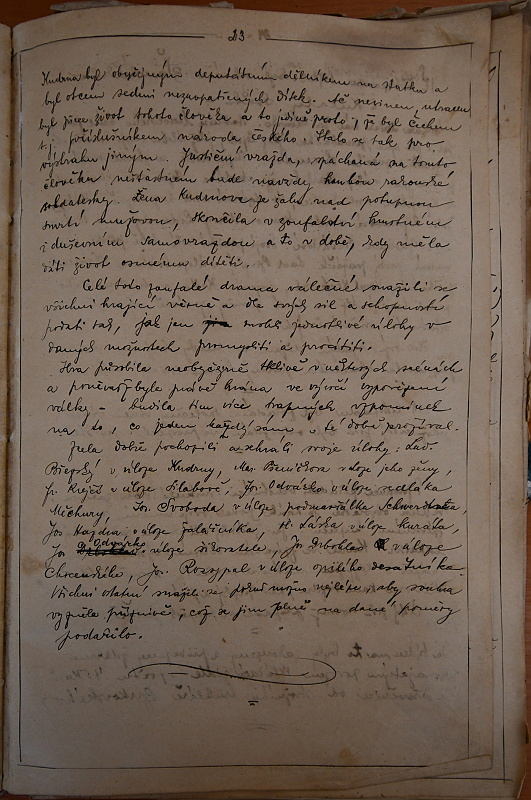 23
Kudrna byl obyčejným deputátním dělníkem na statku a
byl otcem sedmi nezaopatřených dítek. Ač nevinen, utracen
byl přece život tohoto člověka a to jedině proto, že byl Čechem
t. j. příslušníkem národa českého. Stalo se tak pro
výstrahu jiným. Justiční vražda, spáchaná na tomto
člověku nešťastném bude navždy hanbou rakouské
soldatesky. Žena Kudrnova ze žalu nad potupnou
smrtí mužovou, skončila v zoufalství hmotném
i duševním samovraždou a to v době, kdy měla
dáti život osmému dítěti.
Celé toto zoufalé drama válečné snažili se
všichni hrající věrně a dle svých sil a schopností
podati tak, jak jen mohli jednotlivé úlohy v
daných možnostech promysliti a procítiti.
Hra působila neobyčejně tklivě v některých scénách
a poněvadž byla právě hrána ve výročí vypovězení
války – budila tím více trapných vzpomínek
na to, co jeden každý sám v té době prožíval.
Zcela dobře pochopili a sehráli svoje úlohy: Lad.
v úloze Kudrny, Mar. v úloze jeho ženy,
Fr. Krejčí v úloze Jos. Odvárko v úloze sedláka
Měchury, Jos. Svoboda v úloze podmaršálka
Jos. Hajdna v úloze žalářníka, H. Láska v úloze kuráta,
Jos. Odvárko v úloze šikovatele, Jos. Drbohlav v úloze
Jos. Rozsypal v úloze opilého desátníka.
Všichni ostatní snažili se pokud možno nejlépe, aby souhra
vyzněla příznivě, což se jim plně na dané poměry
podařilo.